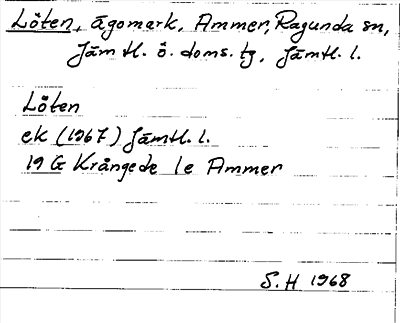 Löten, ägomark, Ammer, Ragunda sn,
Jämtl. ö. doms. tg, Jämtl. l.
Löten
ek (1967) Jämtl. l.
19 G Krångede 1e Ammer
S. H 1968